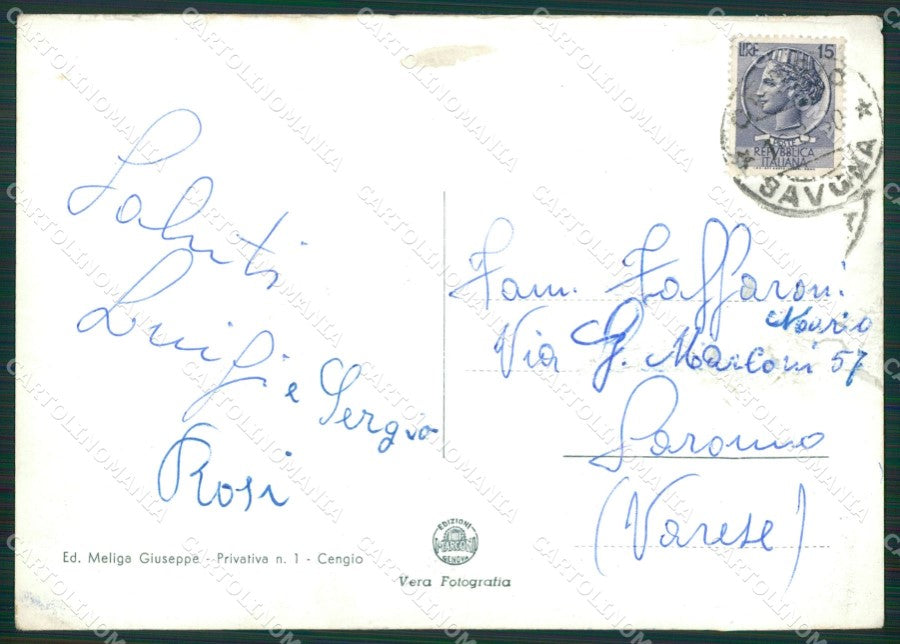 LIRE 15
POSTE
REPVBBLICA
ITALIANA
SAVONA
Saluti
Luigi
e Sergio
Rosi
Fam. Zaffaroni
Mario
Via G. Marconi 57
Saronno
(Varese)
Ed. Meliga Giuseppe - Privativa n. 1 - Cengio
EDIZIONE
GENOVA
Vera Fotografia
CARTOLINOMANIA